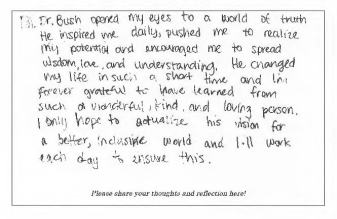 Dr. Bush opened my eyes to a world of truth
He inspired me daily, pushed me to realize
my potential and encouraged me to spread
wisdom, love, and understanding. He changed
my life in such a short time and I'm
forever grateful to have learned from
such a wonderful, kind, and loving person.
I only hope to actualize his vision for
a better, inclusive world and I'll work
each day to ensure this.
Please share your thoughts and reflection here!